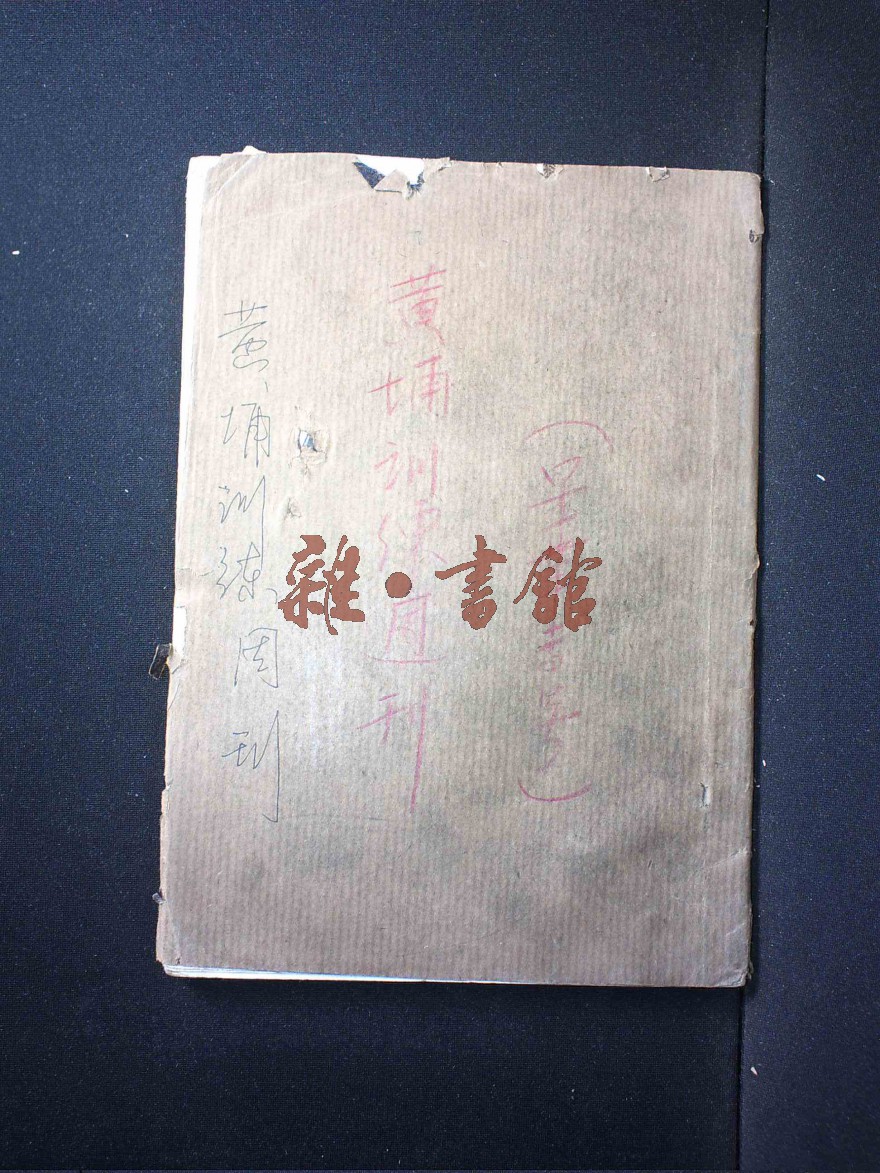 黄埔训练週刊
黄埔训练周刊
雜·書館